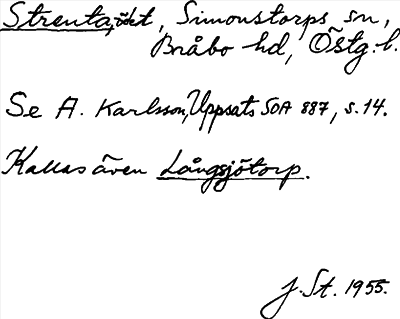 Strenta, ödet, Simonstorps sn,
Bråbo hd, Östg:l.
Se A. Karlsson, Uppsats SOA 887, s. 14.
Kallas även Långsjötorp.
J. St. 1955.